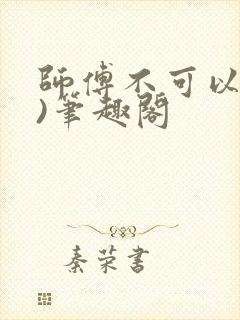 師傅不可以
)筆趣閣
秦荣書